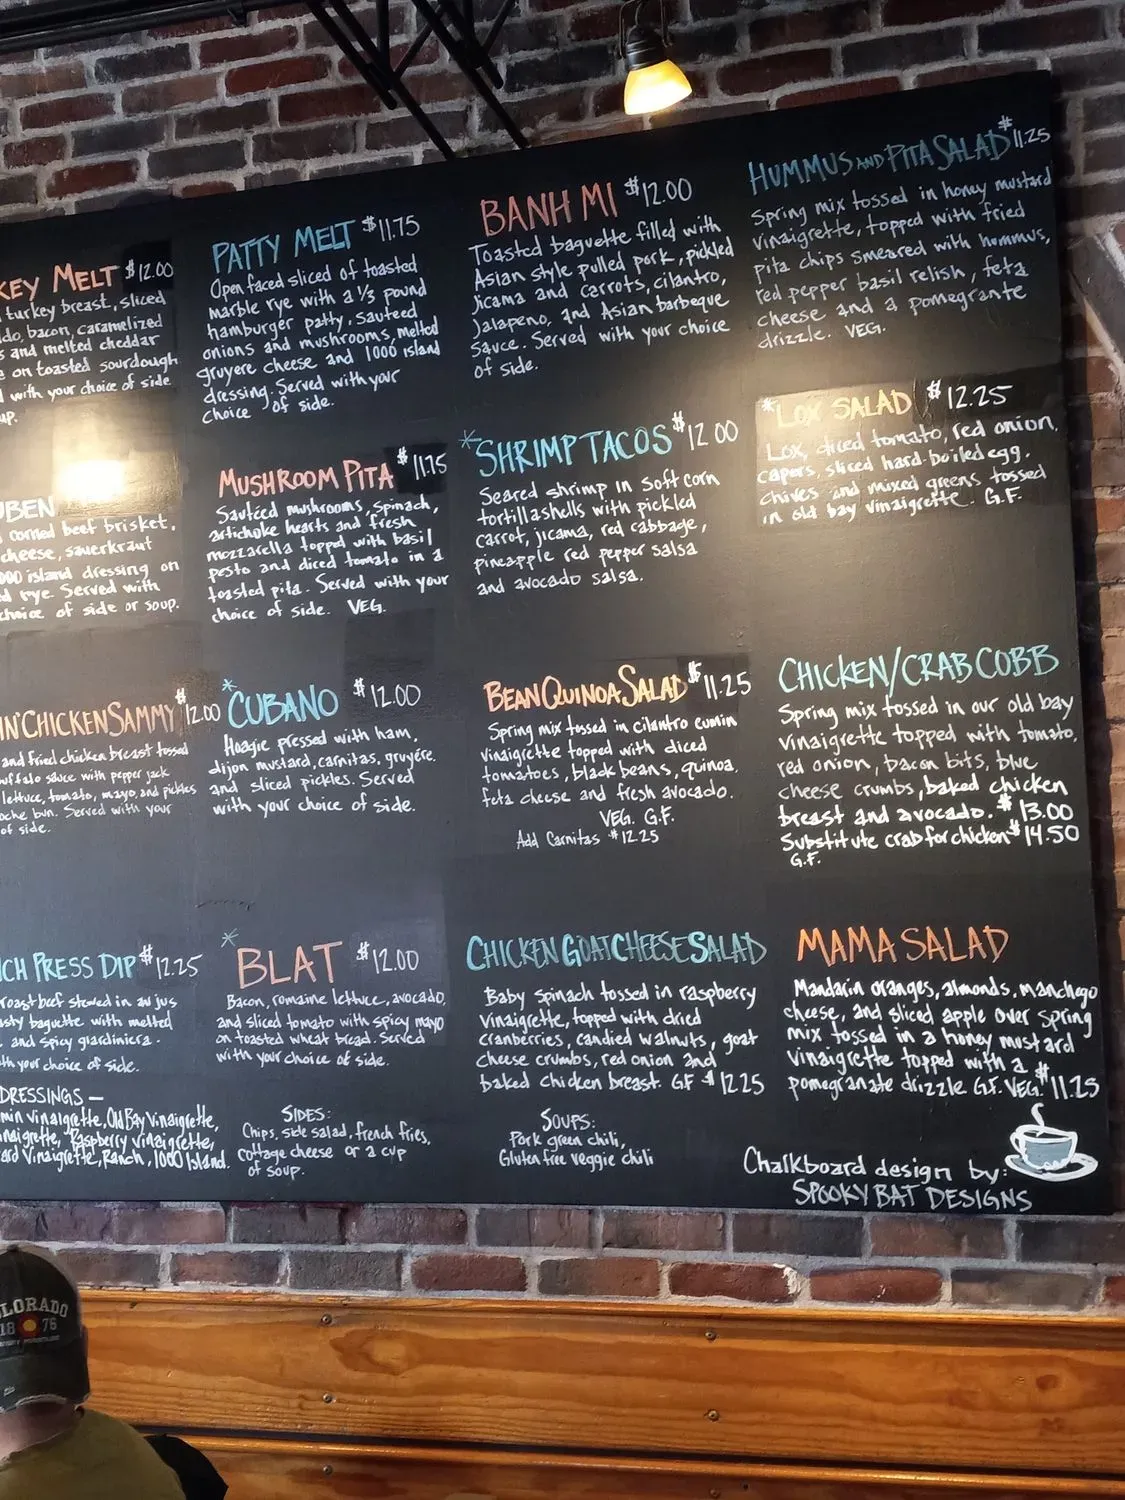 KEY MELT $12.00
turkey breast, sliced
do, bacon, caramelized
s and melted cheddar
e on toasted sourdough
d with your choice of side
up.
PATTY MELT $11.75
Open faced sliced of toasted
marble rye with a 1/3 pound
hamburger patty, sauteed
onions and mushrooms, melted
gruyere cheese and 1000 island
dressing. Served with your
choice of side.
BANH MI $12.00
Toasted baguette filled with
Asian style pulled pork, pickled
jicama and carrots, cilantro,
jalapeno, and Asian barbeque
sauce. Served with your choice
of side.
HUMMUS AND PITA SALAD $11.25
Spring mix tossed in honey mustard
vinaigrette, topped with fried
pita chips smeared with hummus,
red pepper basil relish, feta
cheese and a pomegrante
drizzle. VEG.
UBEN
corned beef brisket,
cheese, sauerkraut
000 island dressing on
d rye. Served with
choice of side or soup.
MUSHROOM PITA $11.75
Sautéed mushrooms, spinach,
artichoke hearts and fresh
mozzarella topped with basil
pesto and diced tomato in a
toasted pita. Served with your
choice of side. VEG.
*SHRIMP TACOS $12.00
Seared shrimp in soft corn
tortilla shells with pickled
carrot, jicama, red cabbage,
pineapple red pepper salsa
and avocado salsa.
*LOX SALAD $12.25
Lox, diced tomato, red onion,
capers, sliced hard-boiled egg,
chives and mixed greens tossed
in old bay vinaigrette. G.F.
IN' CHICKEN SAMMY $12.00
and fried chicken breast tossed
uffalo sauce with pepper jack
lettuce, tomato, mayo, and pickles
oche bun. Served with your
of side.
*CUBANO $12.00
Hoagie pressed with ham,
dijon mustard, carnitas, gruyére,
and sliced pickles. Served
with your choice of side.
BEAN QUINOA SALAD $11.25
Spring mix tossed in cilantro cumin
vinaigrette topped with diced
tomatoes, black beans, quinoa,
feta cheese and fresh avocado.
VEG. G.F.
Add Carnitas $12.25
CHICKEN/CRAB COBB
Spring mix tossed in our old bay
vinaigrette topped with tomato,
red onion, bacon bits, blue
cheese crumbs, baked chicken
breast and avocado. $13.00
Substitute crab for chicken $14.50
G.F.
CH PRESS DIP $12.25
roast beef stewed in au jus
sty baguette with melted
and spicy giardiniera.
th your choice of side.
*BLAT $12.00
Bacon, romaine lettuce, avocado,
and sliced tomato with spicy mayo
on toasted wheat bread. Served
with your choice of side.
CHICKEN GOAT CHEESE SALAD
Baby spinach tossed in raspberry
vinaigrette, topped with dried
cranberries, candied walnuts, goat
cheese crumbs, red onion and
baked chicken breast. GF $12.25
MAMA SALAD
Mandarin oranges, almonds, manchego
cheese, and sliced apple over spring
mix tossed in a honey mustard
vinaigrette topped with a
pomegranate drizzle G.F. VEG. $11.25
DRESSINGS —
min vinaigrette, Old Bay Vinaigrette,
naigrette, Raspberry vinaigrette,
ard Vinaigrette, Ranch, 1000 Island.
SIDES:
Chips, side salad, french fries,
cottage cheese or a cup
of soup.
SOUPS:
Pork green chili,
Gluten free veggie chili
Chalkboard design by:
SPOOKY BAT DESIGNS
LORADO
18 76